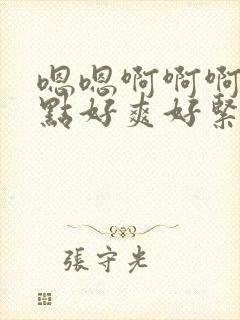 嗯嗯啊啊啊
點好爽好緊
張守光